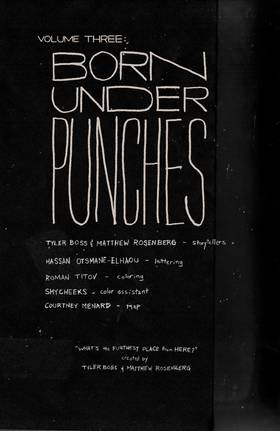 VOLUME THREE:
BORN
UNDER
PUNCHES
TYLER BOSS & MATTHEW ROSENBERG - storytellers.
HASSAN OTSMANE-ELHAOU - lettering
ROMAN TITOV - coloring
SHYCHEEKS - color assistant
COURTNEY MENARD - map
"WHAT'S THE FURTHEST PLACE from HERE?"
created by
TYLER BOSS & MATTHEW ROSENBERG